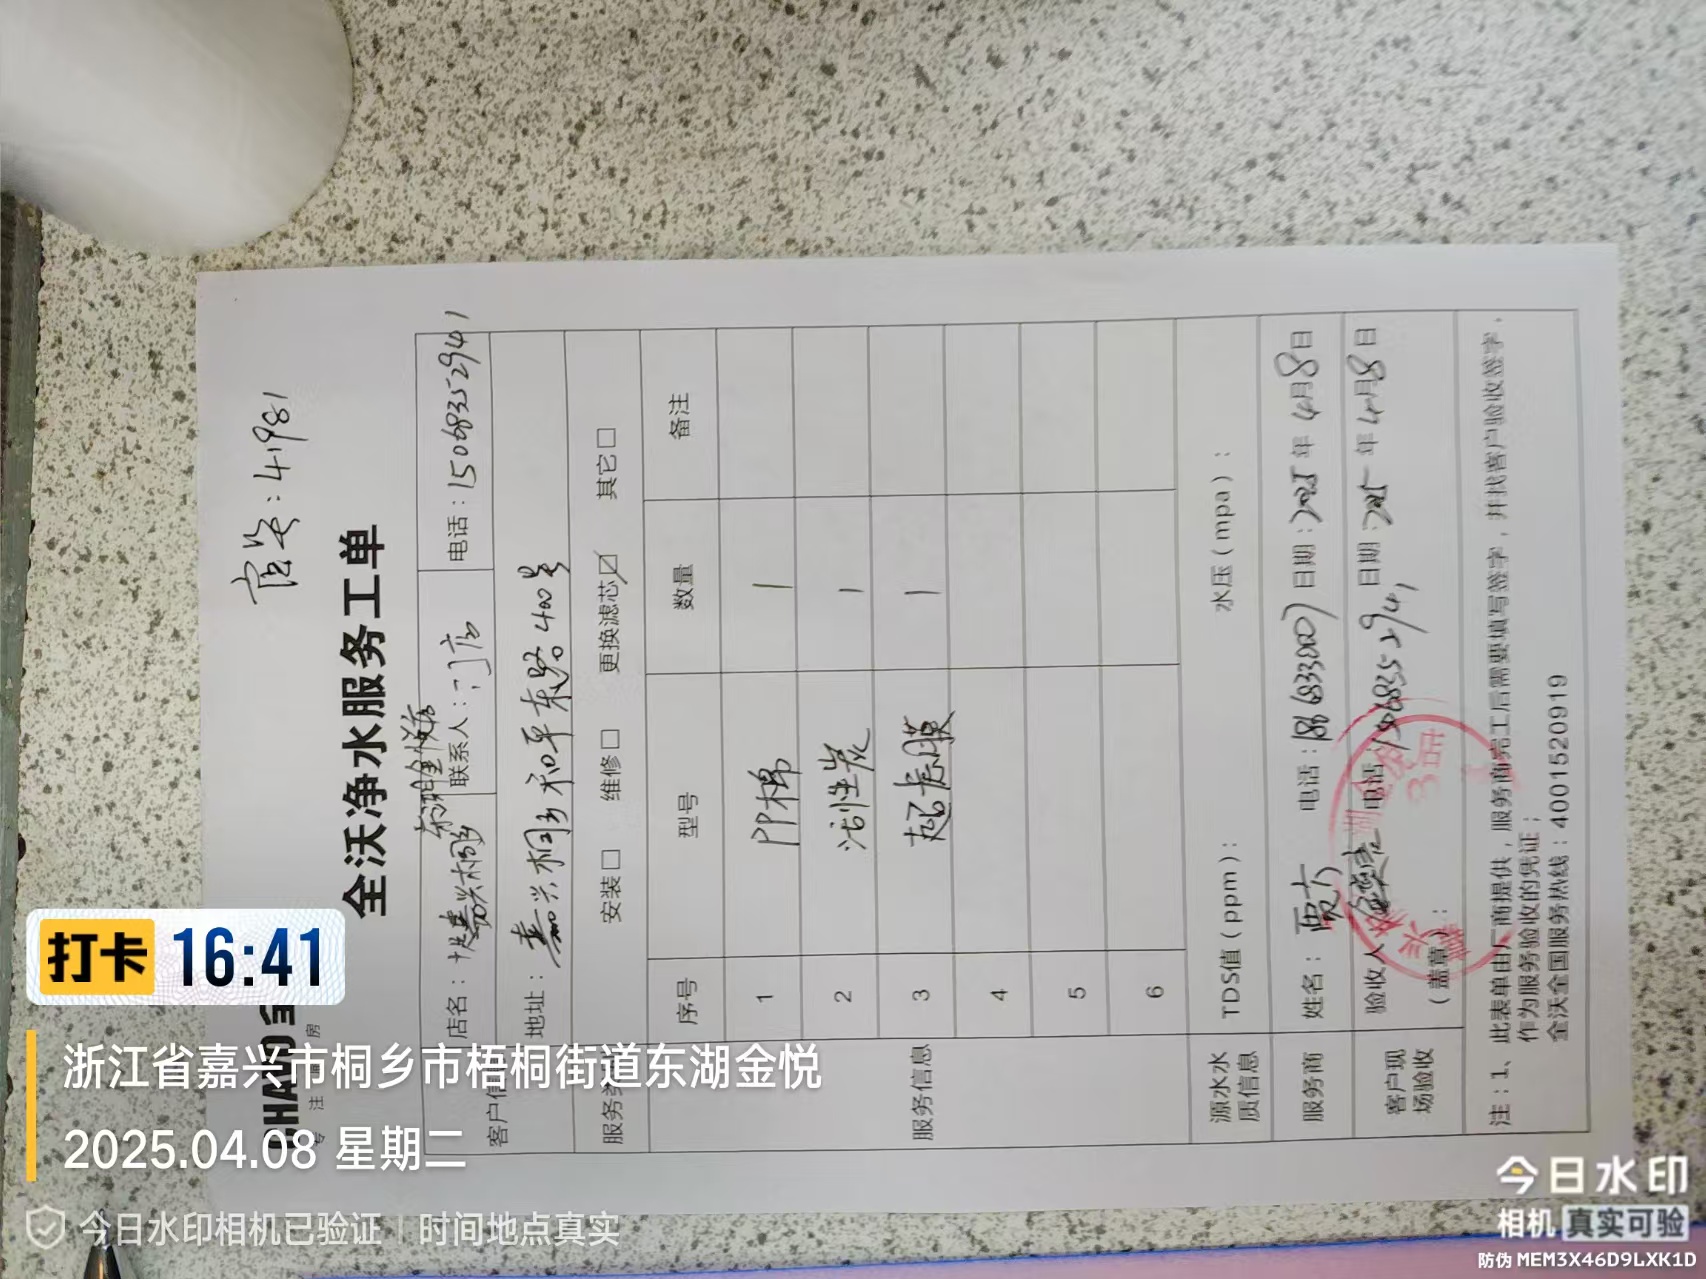 容芬:41981
CHAVO
全沃净水服务工单
客户信
店名: 嘉兴桐乡
联系人:门店
电话:15068352941
地址: 嘉兴桐乡和平东路400号
安装□ 维修□ 更换滤芯☑ 其它□
服务信息
序号 型号 数量 备注
1 PP棉 1
2 活性炭 1
3 超虑膜 1
4
5
6
源水水质信息
TDS值(ppm): 水压(mpa):
服务商 姓名: 贾六 电话: 日期:2025年4月8日
客户现场验收 验收人 电话 15068352941 日期 2025年4月8日
(盖章):
注:1、此表单由厂商提供,服务商完工后需要填写签字,并找客户验收签字,
作为服务验收的凭证;
全沃全国服务热线:4001520919
打卡 16:41
浙江省嘉兴市桐乡市梧桐街道东湖金悦
2025.04.08 星期二
今日水印相机已验证 | 时间地点真实
今日水印
相机 真实可验
防伪 MEM3X46D9LXK1D